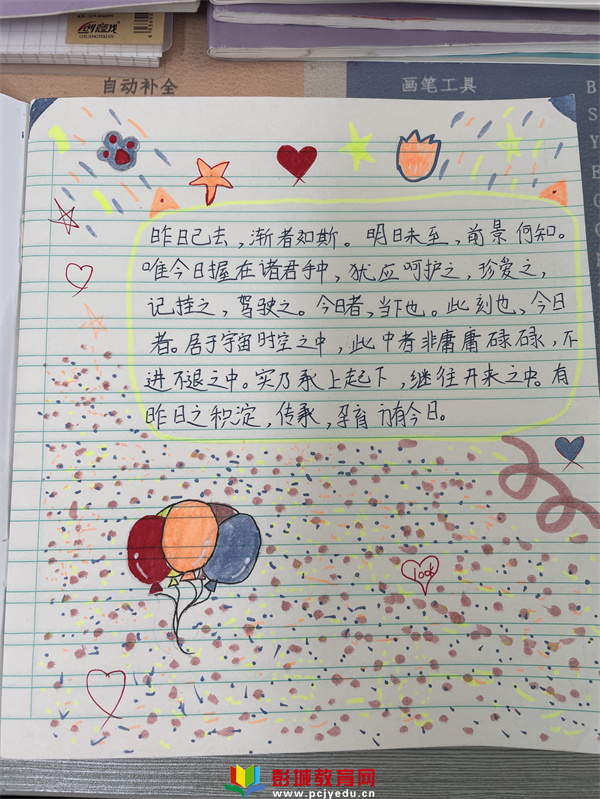 创意线
CHUANGYIXIAN
自动补全
画笔工具
B
S
Y
E
G
昨日已去，渐者如斯。明日未至，前景何知。
唯今日握在诸君手中，犹应呵护之，珍爱之，
记挂之，驾驶之。今日者，当下也。此刻也，今日
者。居于宇宙时空之中，此中者非庸庸碌碌，不
进不退之中。实乃承上起下，继往开来之中。有
昨日之积淀，传承，孕育方有今日。
look
彭城教育网
www.pcjyedu.cn